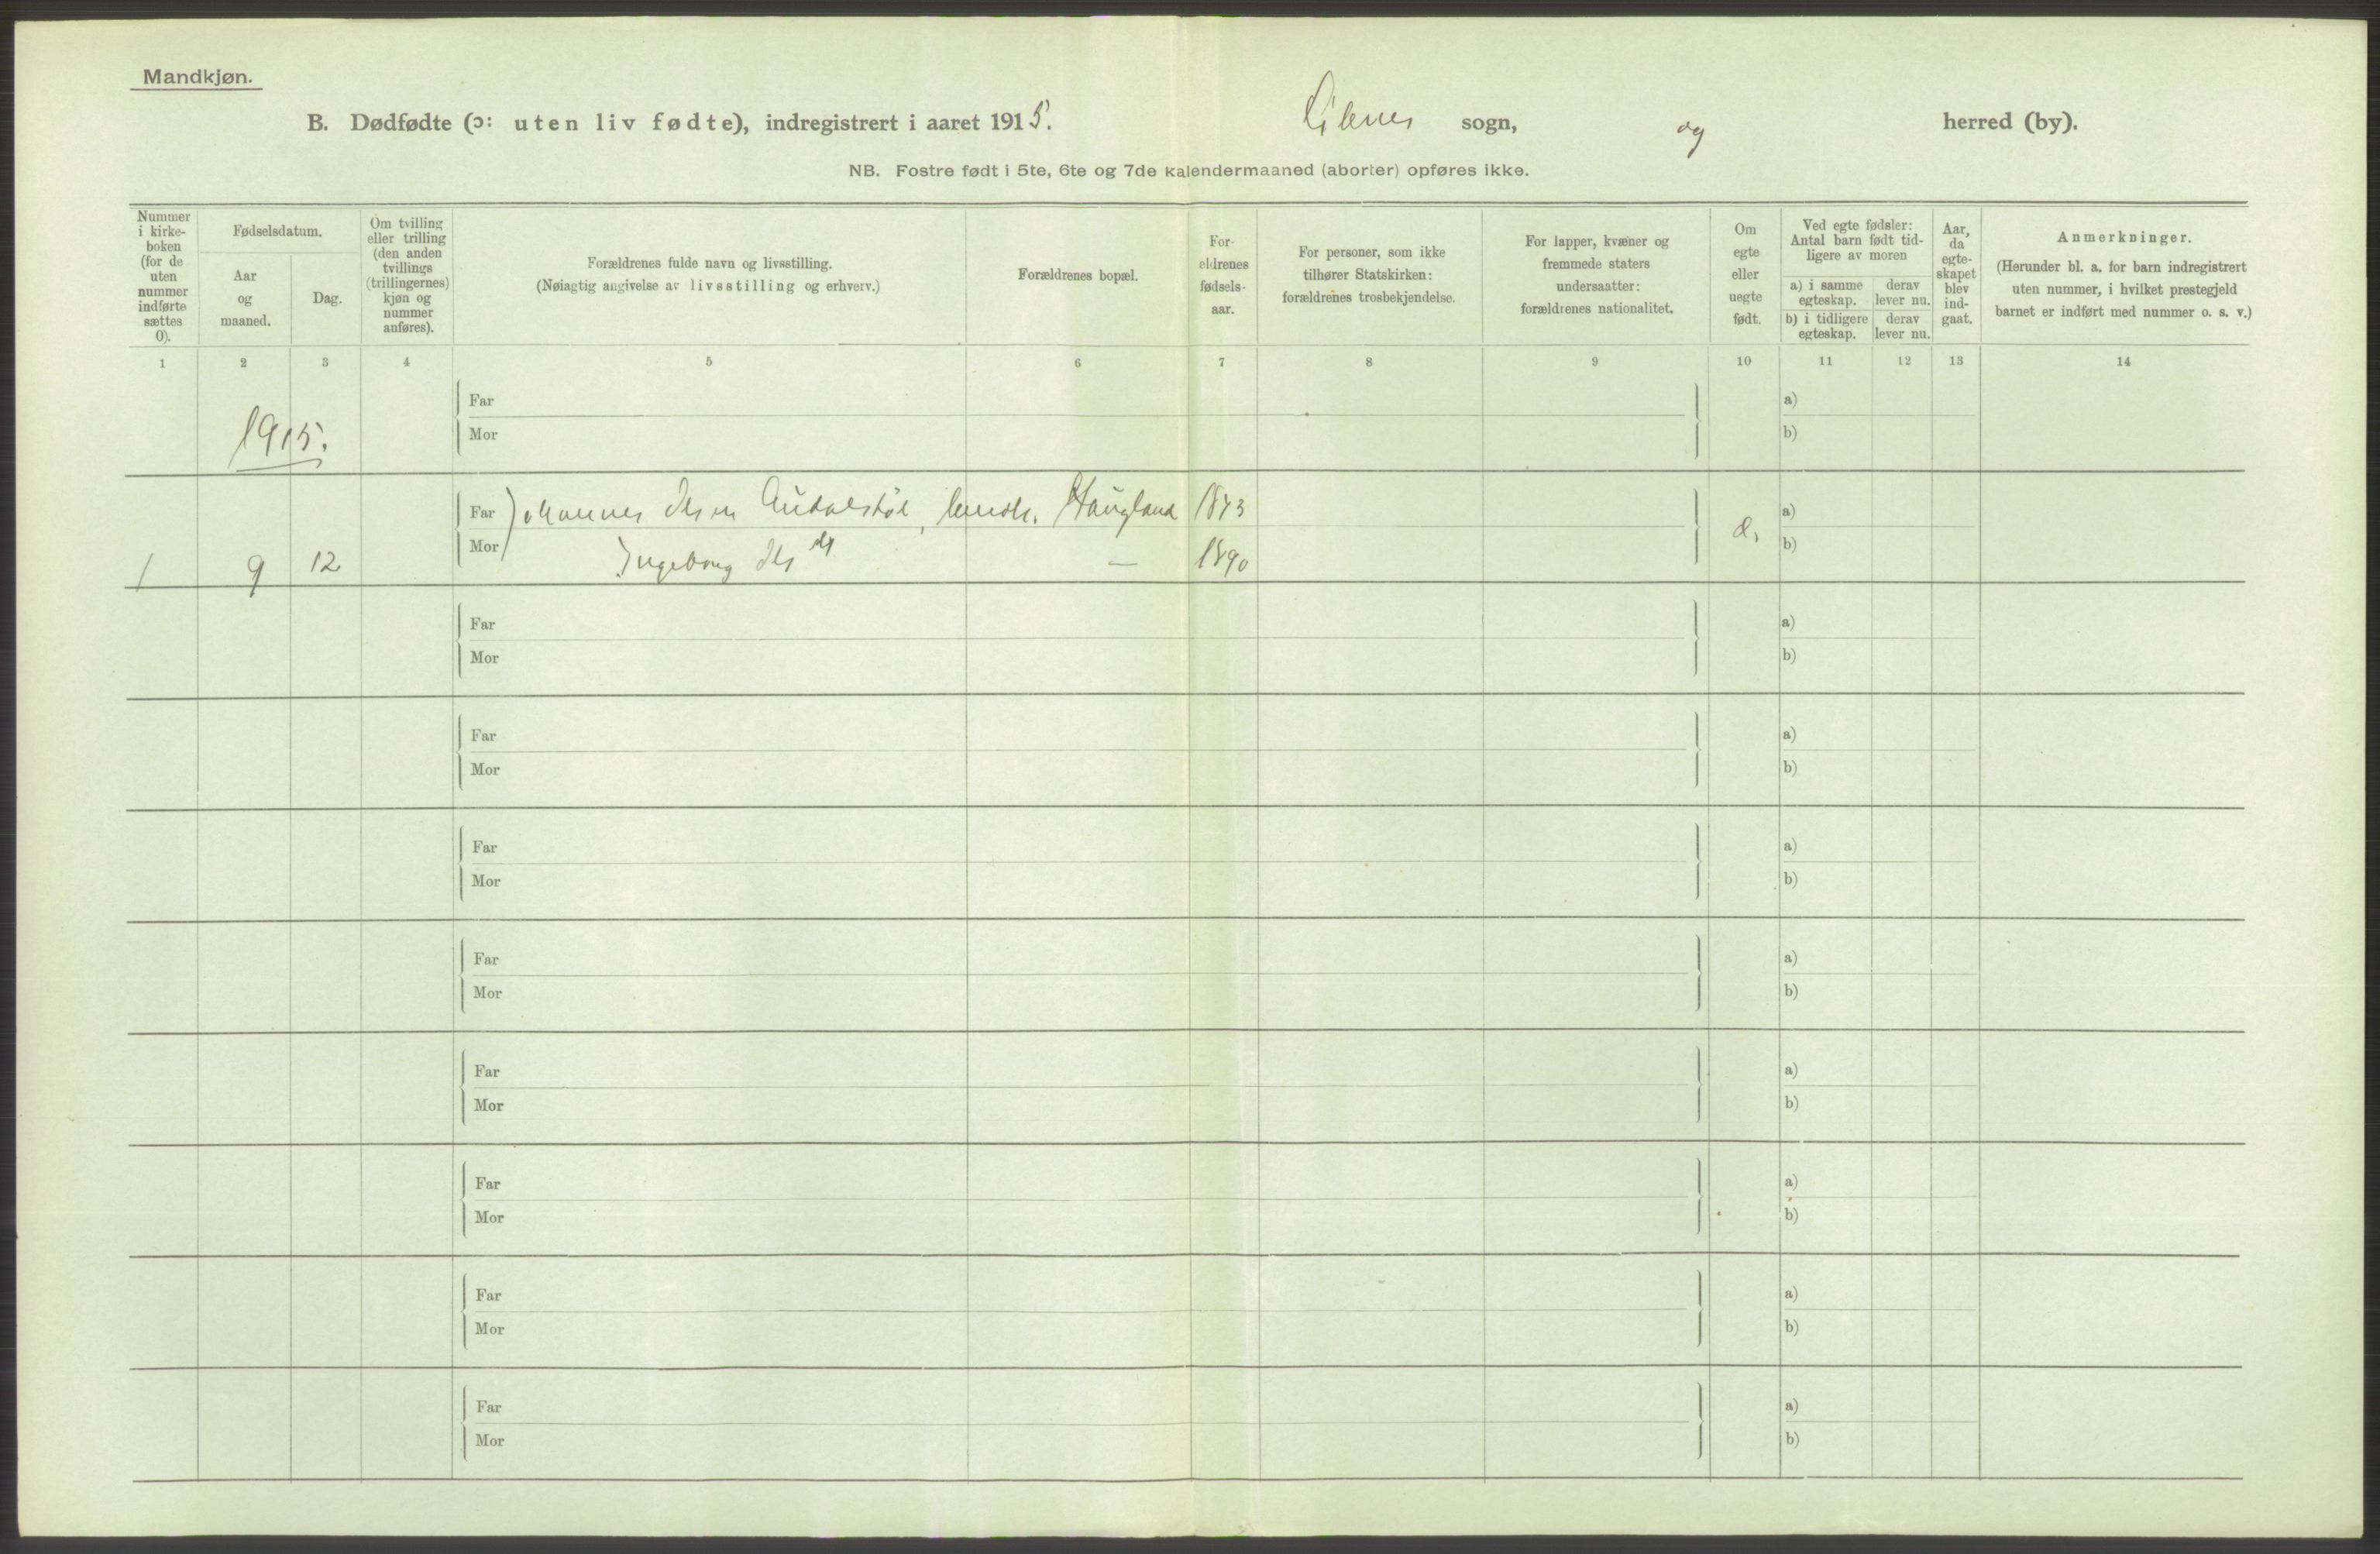 Mandkjøn.
B. Dødfødte (ɔ: uten liv fødte), indregistrert i aaret 1915. sogn, og herred (by).
NB. Fostre født i 5te, 6te og 7de kalendermaaned (aborter) opføres ikke.
Nummer i kirke- boken (for de uten nummer indførte sættes 0).
Fødselsdatum.
Aar og maaned.
Dag.
Om tvilling eller trilling (den anden tvillings (trillingernes) kjøn og nummer anføres).
Forældrenes fulde navn og livsstilling.
(Nøiagtig angivelse av livsstilling og erhverv.)
Forældrenes bopæl.
For- eldrenes fødsels- aar.
For personer, som ikke tilhører Statskirken: forældrenes trosbekjendelse.
For lapper, kvæner og fremmede staters undersaatter: forældrenes nationalitet.
Om egte eller uegte født.
Ved egte fødsler: Antal barn født tid- ligere av moren
a) i samme egteskap.
derav lever nu.
b) i tidligere egteskap.
derav lever nu.
Aar, da egte- skapet blev ind- gaat.
Anmerkninger.
(Herunder bl. a. for barn indregistrert uten nummer, i hvilket prestegjeld barnet er indført med nummer o. s. v.)
1 2 3 4 5 6 7 8 9 10 11 12 13 14
1915.
Far a)
Mor b)
Far Johannes Olsen Haugland 1873 a)
Mor Ingeborg Ols dt — 1890 b)
1 9 12
Far a)
Mor b)
Far a)
Mor b)
Far a)
Mor b)
Far a)
Mor b)
Far a)
Mor b)
Far a)
Mor b)
Far a)
Mor b)
Far a)
Mor b)